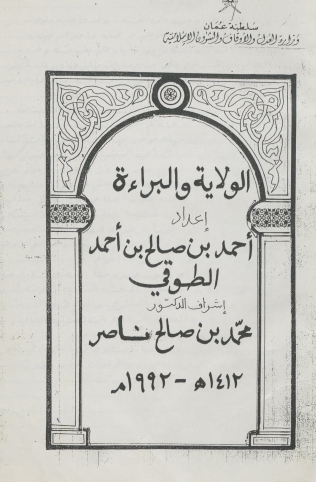 سلطنة عمان
وزارة العدل والأوقاف والشؤون الإسلامية
الولاية والبراءة
إعداد
أحمد بن صالح بن أحمد
الطوقي
إشراف الدكتور
محمد بن صالح ناصر
١٤١٢ه - ١٩٩٢م